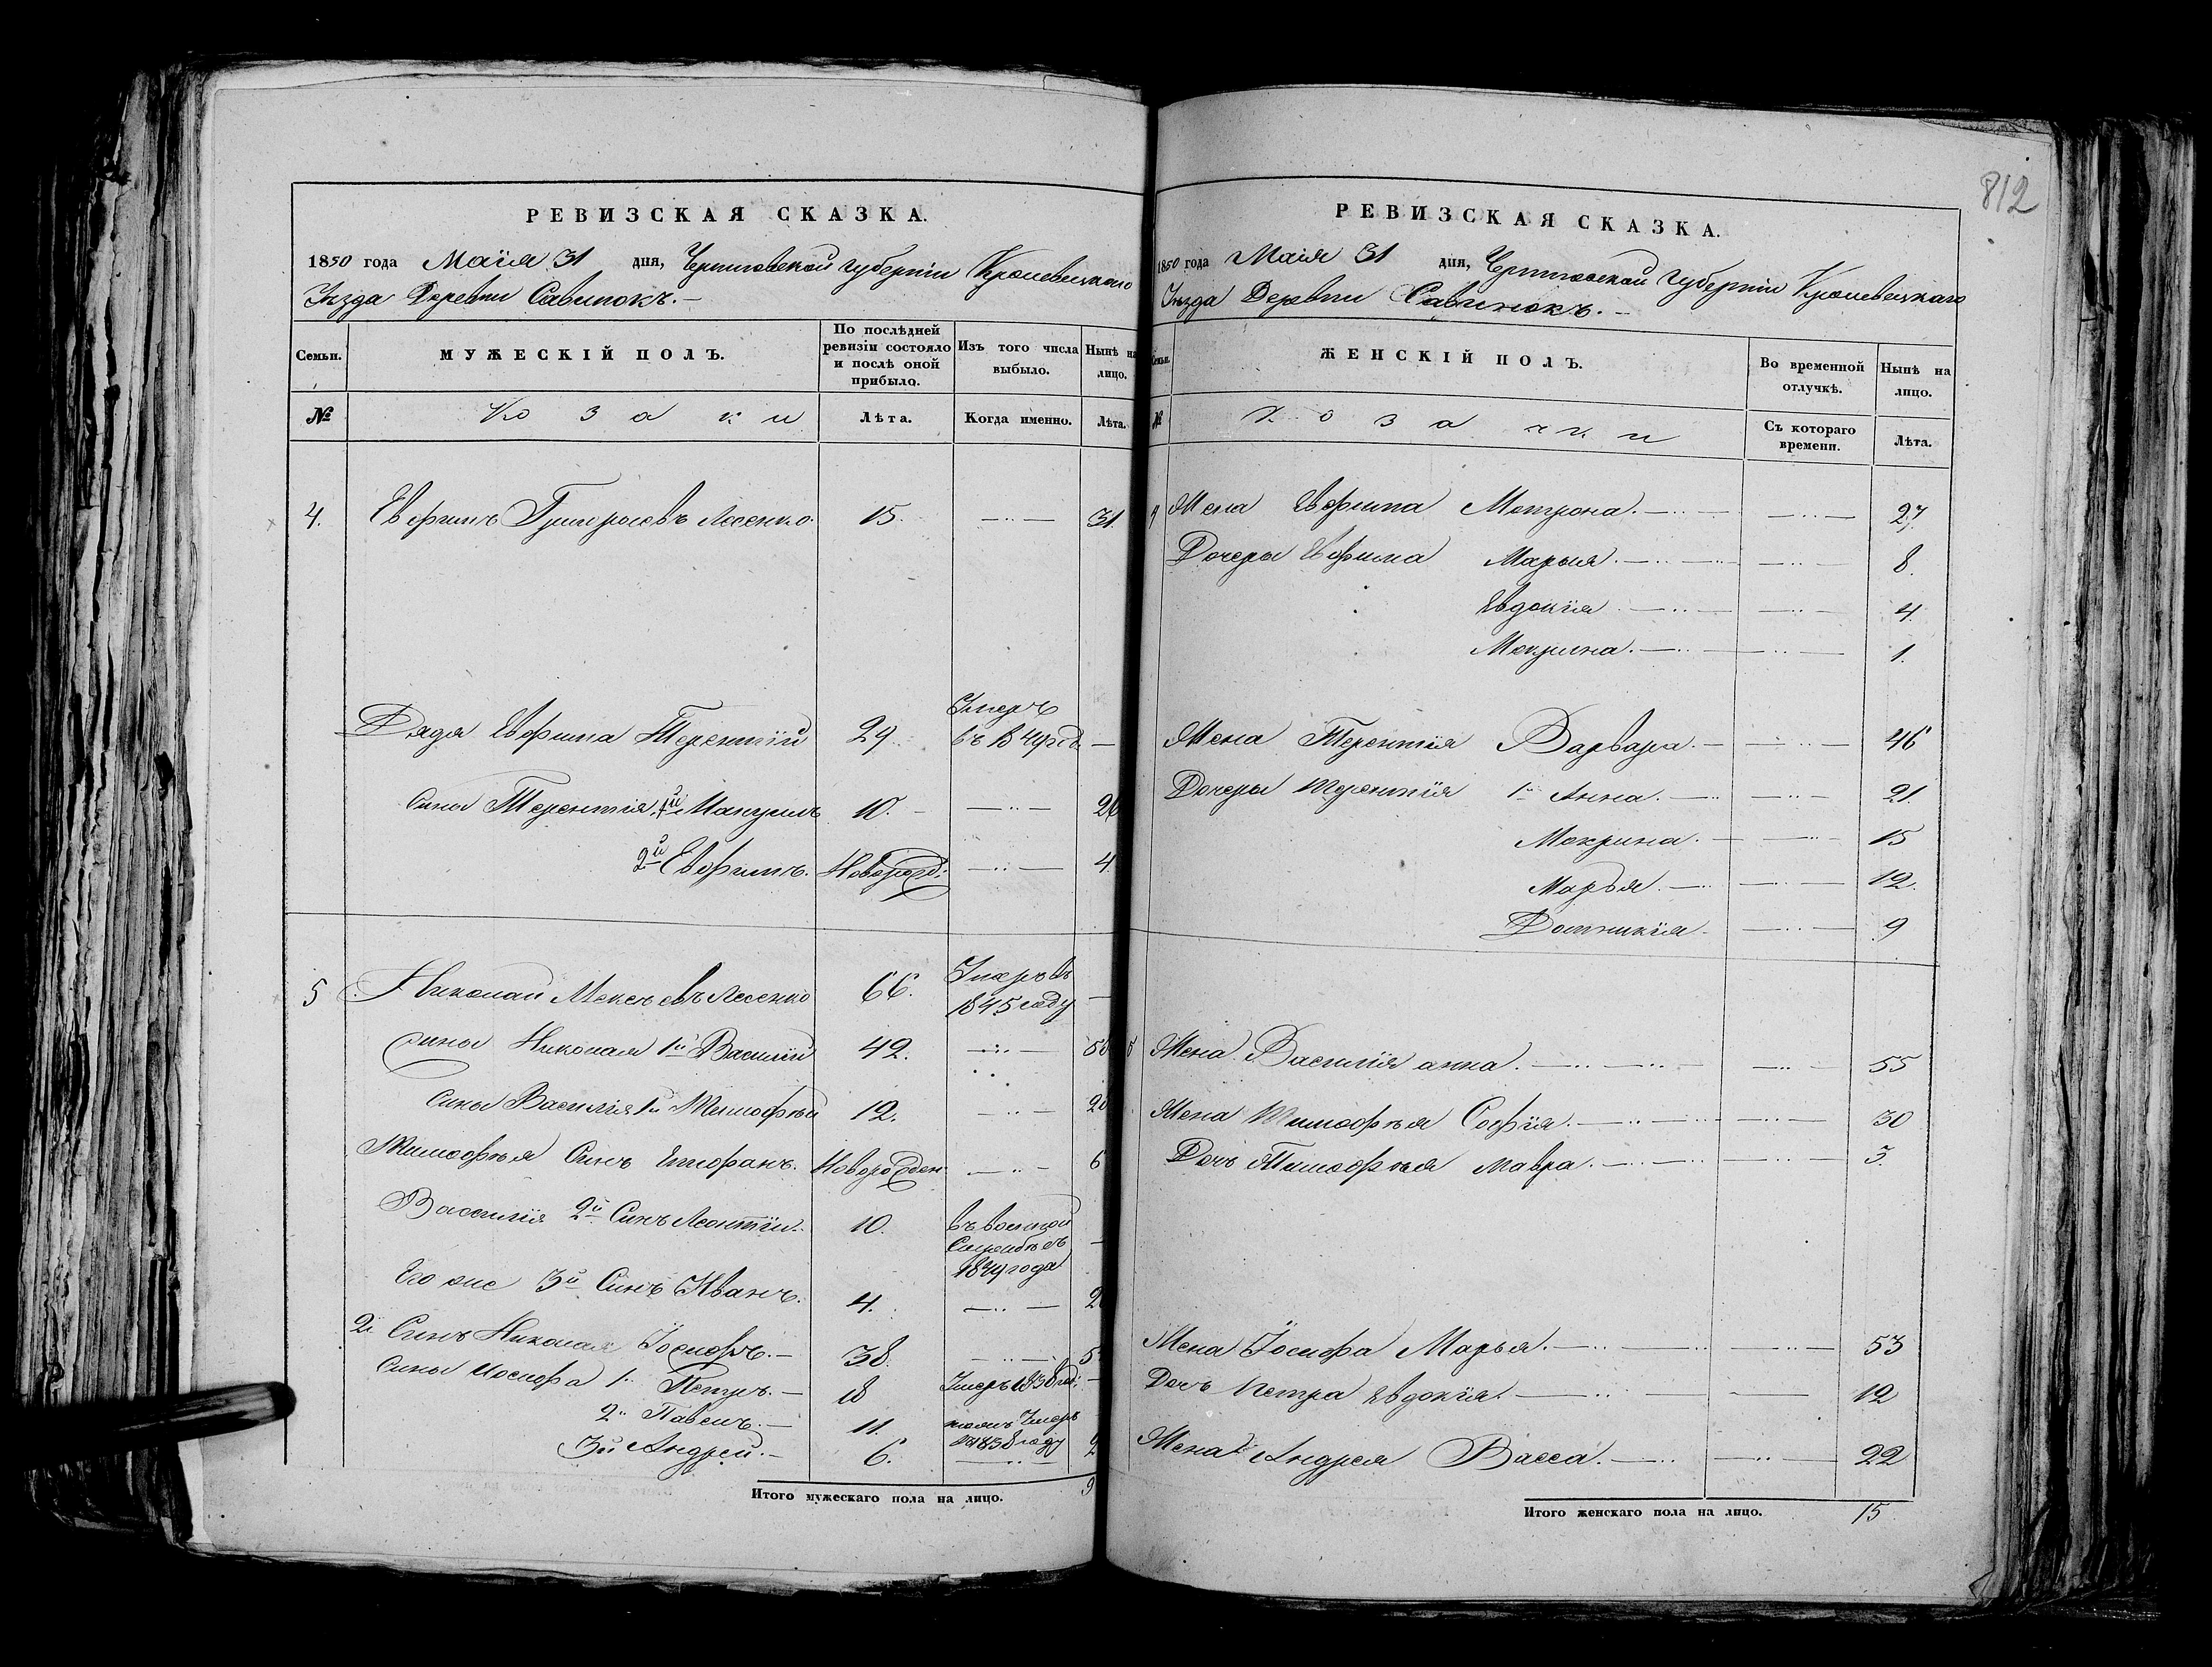 812
РЕВИЗСКАЯ СКАЗКА.
1850 года Маія 31 дня, Черниговской губерніи Кролевецкаго
Уѣзда Деревни Савинокъ.
Семьи. МУЖЕСКІЙ ПОЛЪ. По послѣдней ревизіи состояло и послѣ оной прибыло. Изъ того числа выбыло. Нынѣ на лицо.
№ Козаки Лѣта. Когда именно. Лѣта.
4. Евфимъ Григорьевъ Лесенко. 15. 31
Дядя Евфима Терентій 29 Умеръ въ
Сыны Терентія, 1й Мануилъ 10. 26
2й Евфимъ. Новорожд: 4
5 Николай Лесенко 66. Умеръ въ
1845 году
Сыны Николая 1й Василій 42.
Сыны Василія 1й Тимофѣй 12.
Тимофѣя Синъ Епифанъ. Новорожден 6
Василія 2й Синъ Леонтій. 10. въ военной
службѣ съ
года
Его же 3й Синъ Иванъ. 4.
2й Синъ Николая Іосифъ. 38.
Сины Иосифа 1. Петръ. 18 Умеръ 1838 год:
2й Павелъ. 11. Умеръ
1838 году
3й Андрей. 6.
Итого мужескаго пола на лицо. 9
РЕВИЗСКАЯ СКАЗКА.
1850 года Маія 31 дня, Черниговской губерніи Кролевецкаго
Уѣзда Деревни Савинокъ.
Семьи. ЖЕНСКІЙ ПОЛЪ. Во временной отлучкѣ. Нынѣ на лицо.
№ Козачки Съ котораго времени. Лѣта.
Жена Евфима Мотрона. 27
Дочеры Евфима Марья. 8.
Евдокія 4.
Мокрина. 1.
Жена Терентія Варвара. 46
Дочеры Терентія 1я Анна. 21.
Мокрина. 15
Марья. 12.
Домникія 9
5 Жена Василія анна. 55
Жена Тимофѣя Софія. 30
Дочь Тимофѣя Мавра. 3.
Жена Іосифа Марья. 53
Дочь Петра Евдокія. 12
Жена Андрея Васса. 22
Итого женскаго пола на лицо. 15